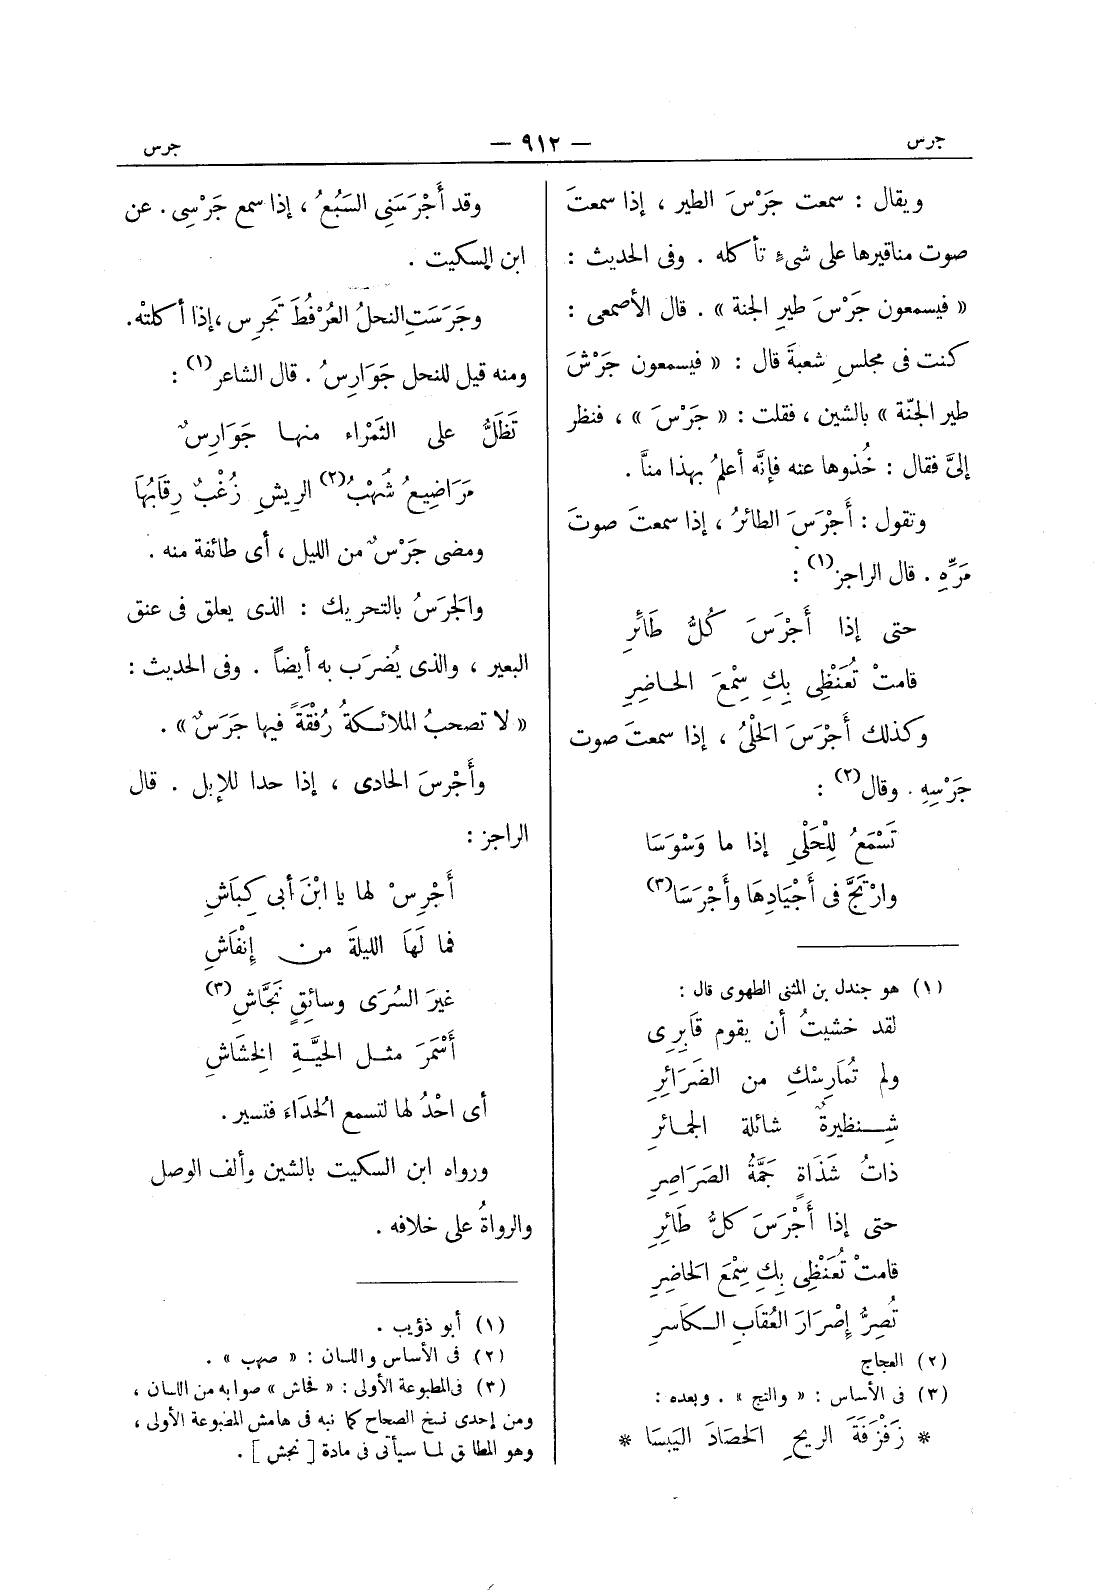 جرس
— ٩١٢ —
جرس
ويقال : سمعت جَرْسَ الطير ، إذا سمعتَ
صوت مناقيرها على شىءٍ تأكله . وفى الحديث :
« فيسمعون جَرْسَ طيرِ الجنة » . قال الأصمعى :
كنت فى مجلسِ شعبةَ قال : « فيسمعون جَرْشَ
طير الجنّة » بالشين ، فقلت : « جَرْسَ » ، فنظر
إلىَّ فقال : خُذوها عنه فإنَّه أعلمُ بهذا منَّا .
وتقول : أَجْرَسَ الطائرُ ، إذا سمعتَ صوتَ
مَرِّهِ . قال الراجز(١) :
حتى إذا أَجْرَسَ كُلُّ طَائرِ
قامتْ تُعَنْظِى بِكِ سِمْعَ الحاضِرِ
وكذلك أَجْرَسَ الحَلْىُ ، إذا سمعتَ صوت
جَرْسِهِ . وقال(٢) :
تَسْمَعُ لِلْحَلْىِ إذا ما وَسْوَسَا
وارْتَجَّ فى أَجْيَادِهَا وأَجْرَسَا(٣)
(١) هو جندل بن المثنى الطهوى قال :
لقد خشيتُ أن يقوم قَابِرِى
ولم تُمَارِسْكِ من الضَرَائِرِ
شِنظيرةٌ شائلة الجمائرِ
ذاتُ شَذَاةٍ جَمَّةُ الصَرَاصِرِ
حتى إذا أَجْرَسَ كلُّ طَائِرِ
قامتْ تُعَنْظِى بِكِ سِمْعَ الحَاضِرِ
تُصِرُّ إصْرَارَ العُقَابِ الكَاسرِ
(٢) العجاج
(٣) فى الأساس : « والتج » . وبعده :
* زَفْزَفَةَ الريحِ الحَصَادَ اليَبسَا *
وقد أَجْرَسَنِى السَبُعُ ، إذا سمع جَرْسِى . عن
ابن السكيت .
وجَرَسَتِ النحلُ العُرْفُطَ تَجرِس ، إذا أكلتْه .
ومنه قيل للنحل جَوَارِسُ . قال الشاعر(١) :
تَظَلُّ على الثَمْرَاء منها جَوَارِسٌ
مَرَاضِيعُ شُهْبُ(٢) الرِيشِ زُغْبٌ رِقابُهَا
ومضى جَرْسٌ من الليل ، أى طائفة منه .
والجَرَسُ بالتحريك : الذى يعلق فى عنق
البعير ، والذى يُضرَب به أيضاً . وفى الحديث :
« لا تصحبُ الملائكةُ رُفْقَةً فيها جَرَسٌ » .
وأَجْرسَ الحادى ، إذا حدا للإبل . قال
الراجز :
أَجْرِسْ لها يا ابْنَ أبى كِبَاشِ
فما لَهَا الليلةَ من إِنْفَاشِ
غيرَ السُرَى وسائقٍ نَجَّاشِ(٣)
أَسْمَرَ مثل الحيَّةِ الخشَاشِ
أى احْدُ لها لتسمع الحُدَاءَ فتسير .
ورواه ابن السكيت بالشين وألف الوصل
والرواةُ على خلافه .
(١) أبو ذؤيب .
(٢) فى الأساس واللسان : « صهب » .
(٣) فى المطبوعة الأولى : « فحاش » صوابه من اللسان ،
ومن إحدى نسخ الصحاح كما نبه فى هامش المطبوعة الأولى ،
وهو المطابق لما سيأتى فى مادة [ نجش ] .